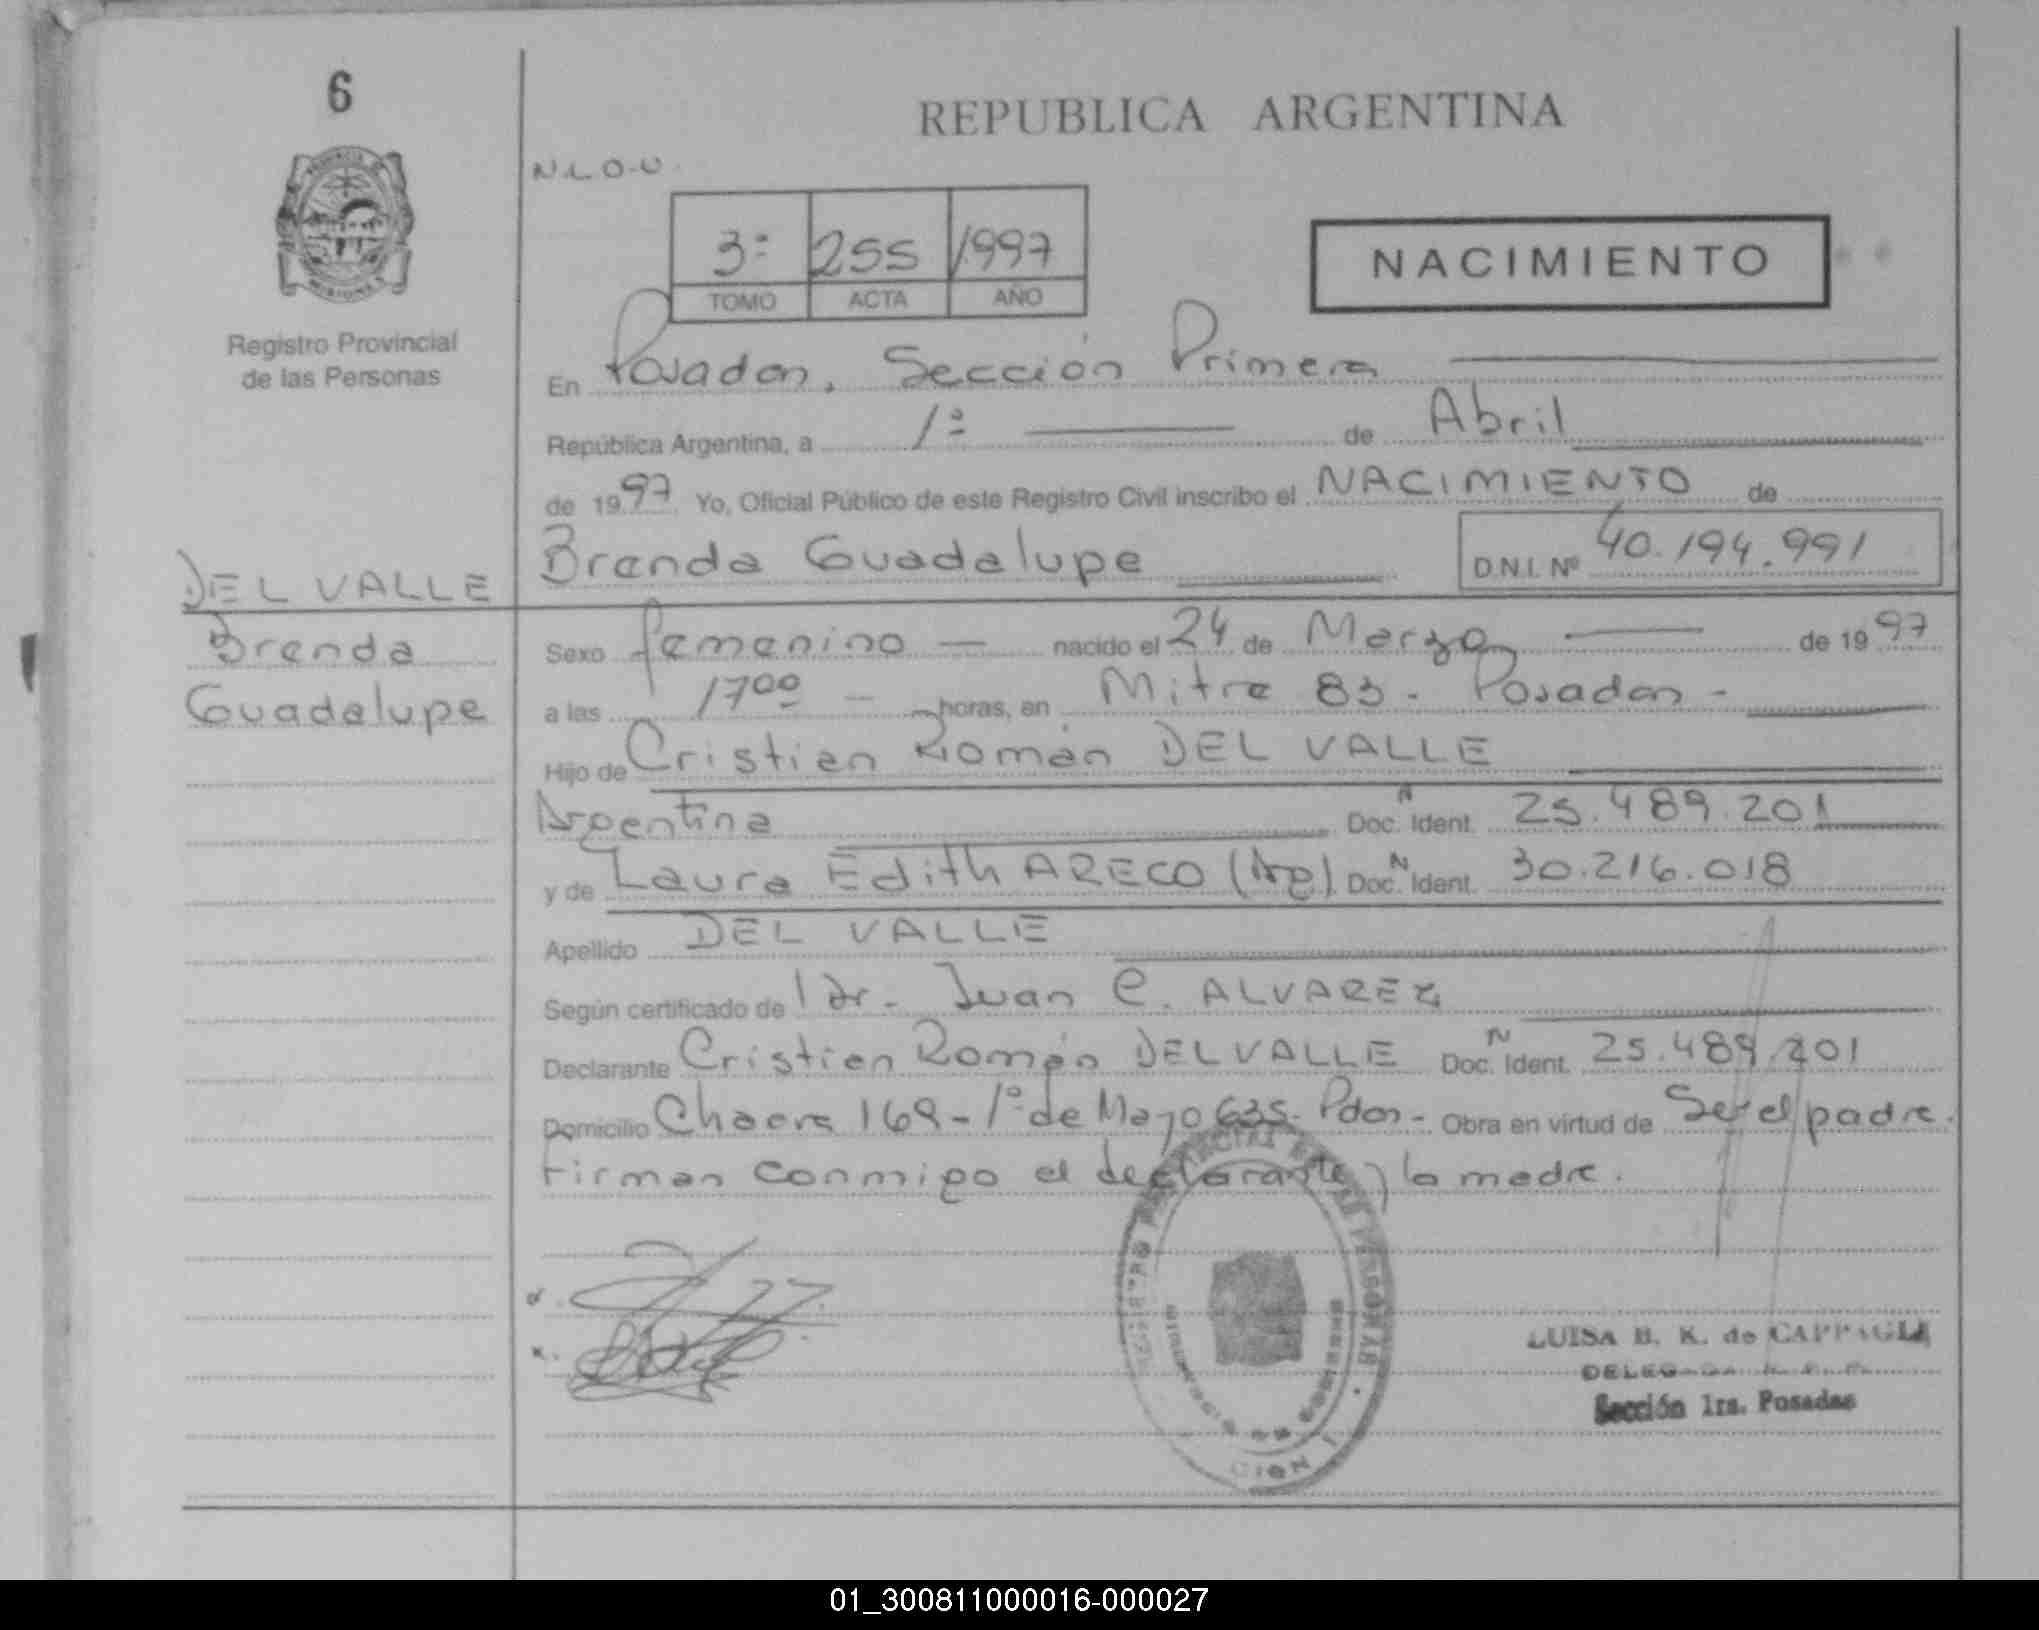 6
REPUBLICA ARGENTINA
N.L.O.U.
3º 255 1997
TOMO ACTA AÑO
NACIMIENTO
Registro Provincial
de las Personas
En Posadas, Sección Primera
República Argentina, a 1º de Abril
de 1997 Yo, Oficial Público de este Registro Civil inscribo el NACIMIENTO de
Brenda Guadalupe D.N.I. Nº 40.194.991
DEL VALLE
Brenda
Guadalupe
Sexo femenino nacido el 24 de Marzo de 1997
a las 17 00 horas, en Mitre 83 - Posadas -
Hijo de Cristian Román DEL VALLE
Argentina Doc. N Ident. 25.489.201
y de Laura Edith ARECO (Arg) Doc. N Ident. 30.216.018
Apellido DEL VALLE
Según certificado de Dr. Juan C. ALVAREZ
Declarante Cristian Román DEL VALLE Doc. N Ident. 25.489.201
Domicilio Chacra 169 - 1º de Mayo 635 - Pdas - Obra en virtud de Ser el padre.
Firman conmigo el declarante y la madre.
LUISA B. K. de
DELEGADA
Sección 1ra. Posadas
01_300811000016-000027